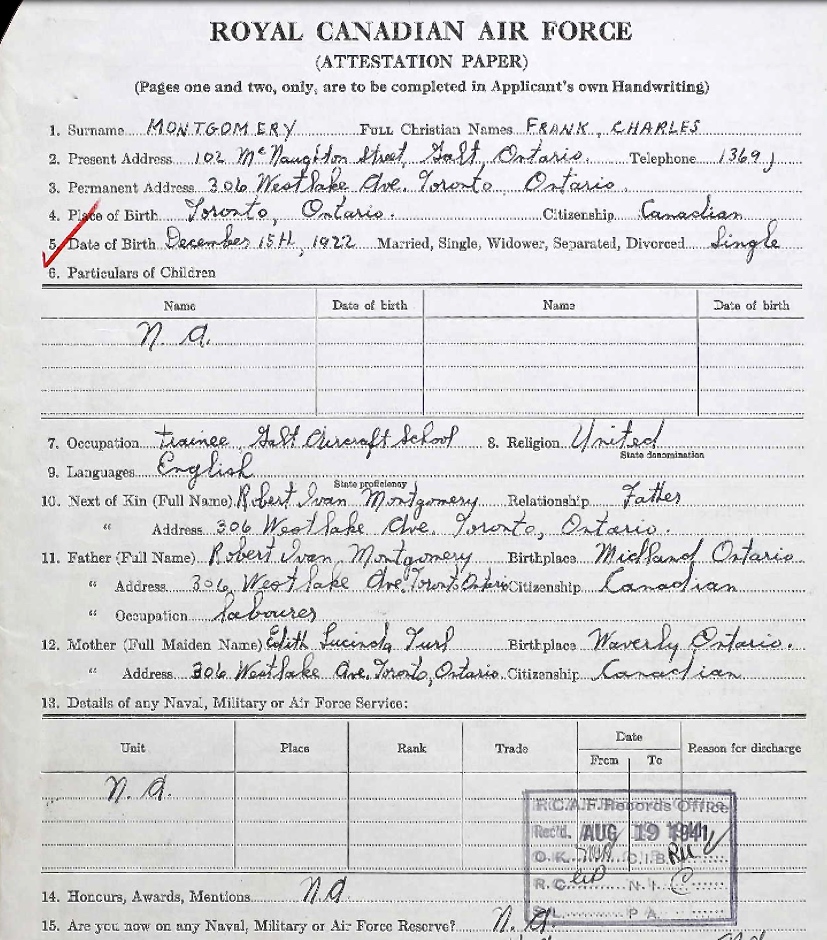 ROYAL CANADIAN AIR FORCE
(ATTESTATION PAPER)
(Pages one and two, only, are to be completed in Applicant's own Handwriting)
1. Surname MONTGOMERY Full Christian Names FRANK, CHARLES
2. Present Address 102 McNaughton Street, Galt, Ontario. Telephone 1369J
3. Permanent Address 306 Westlake Ave. Toronto, Ontario.
4. Place of Birth Toronto, Ontario. Citizenship Canadian
5. Date of Birth December 15th, 1922 Married, Single, Widower, Separated, Divorced Single
6. Particulars of Children
Name Date of birth Name Date of birth
N. A.
7. Occupation Trainee Galt Aircraft School 8. Religion United
State denomination
9. Languages English
State proficiency
10. Next of Kin (Full Name) Robert Ivan Montgomery Relationship Father
" Address 306 Westlake Ave. Toronto, Ontario.
11. Father (Full Name) Robert Ivan Montgomery Birthplace Midland Ontario
" Address 306 Westlake Ave. Toronto Ontario Citizenship Canadian
" Occupation labourer
12. Mother (Full Maiden Name) Edith Lucinda Birthplace Waverly Ontario.
" Address 306 Westlake Ave. Toronto, Ontario. Citizenship Canadian
13. Details of any Naval, Military or Air Force Service:
Unit Place Rank Trade Date Reason for discharge
From To
N. A.
R.C.A.F. Records Office
Rec'd. AUG 19 1941
O.K. C.I.B.
R.C. N.I. C
P.A.
14. Honours, Awards, Mentions N.A
15. Are you now on any Naval, Military or Air Force Reserve? N. A.